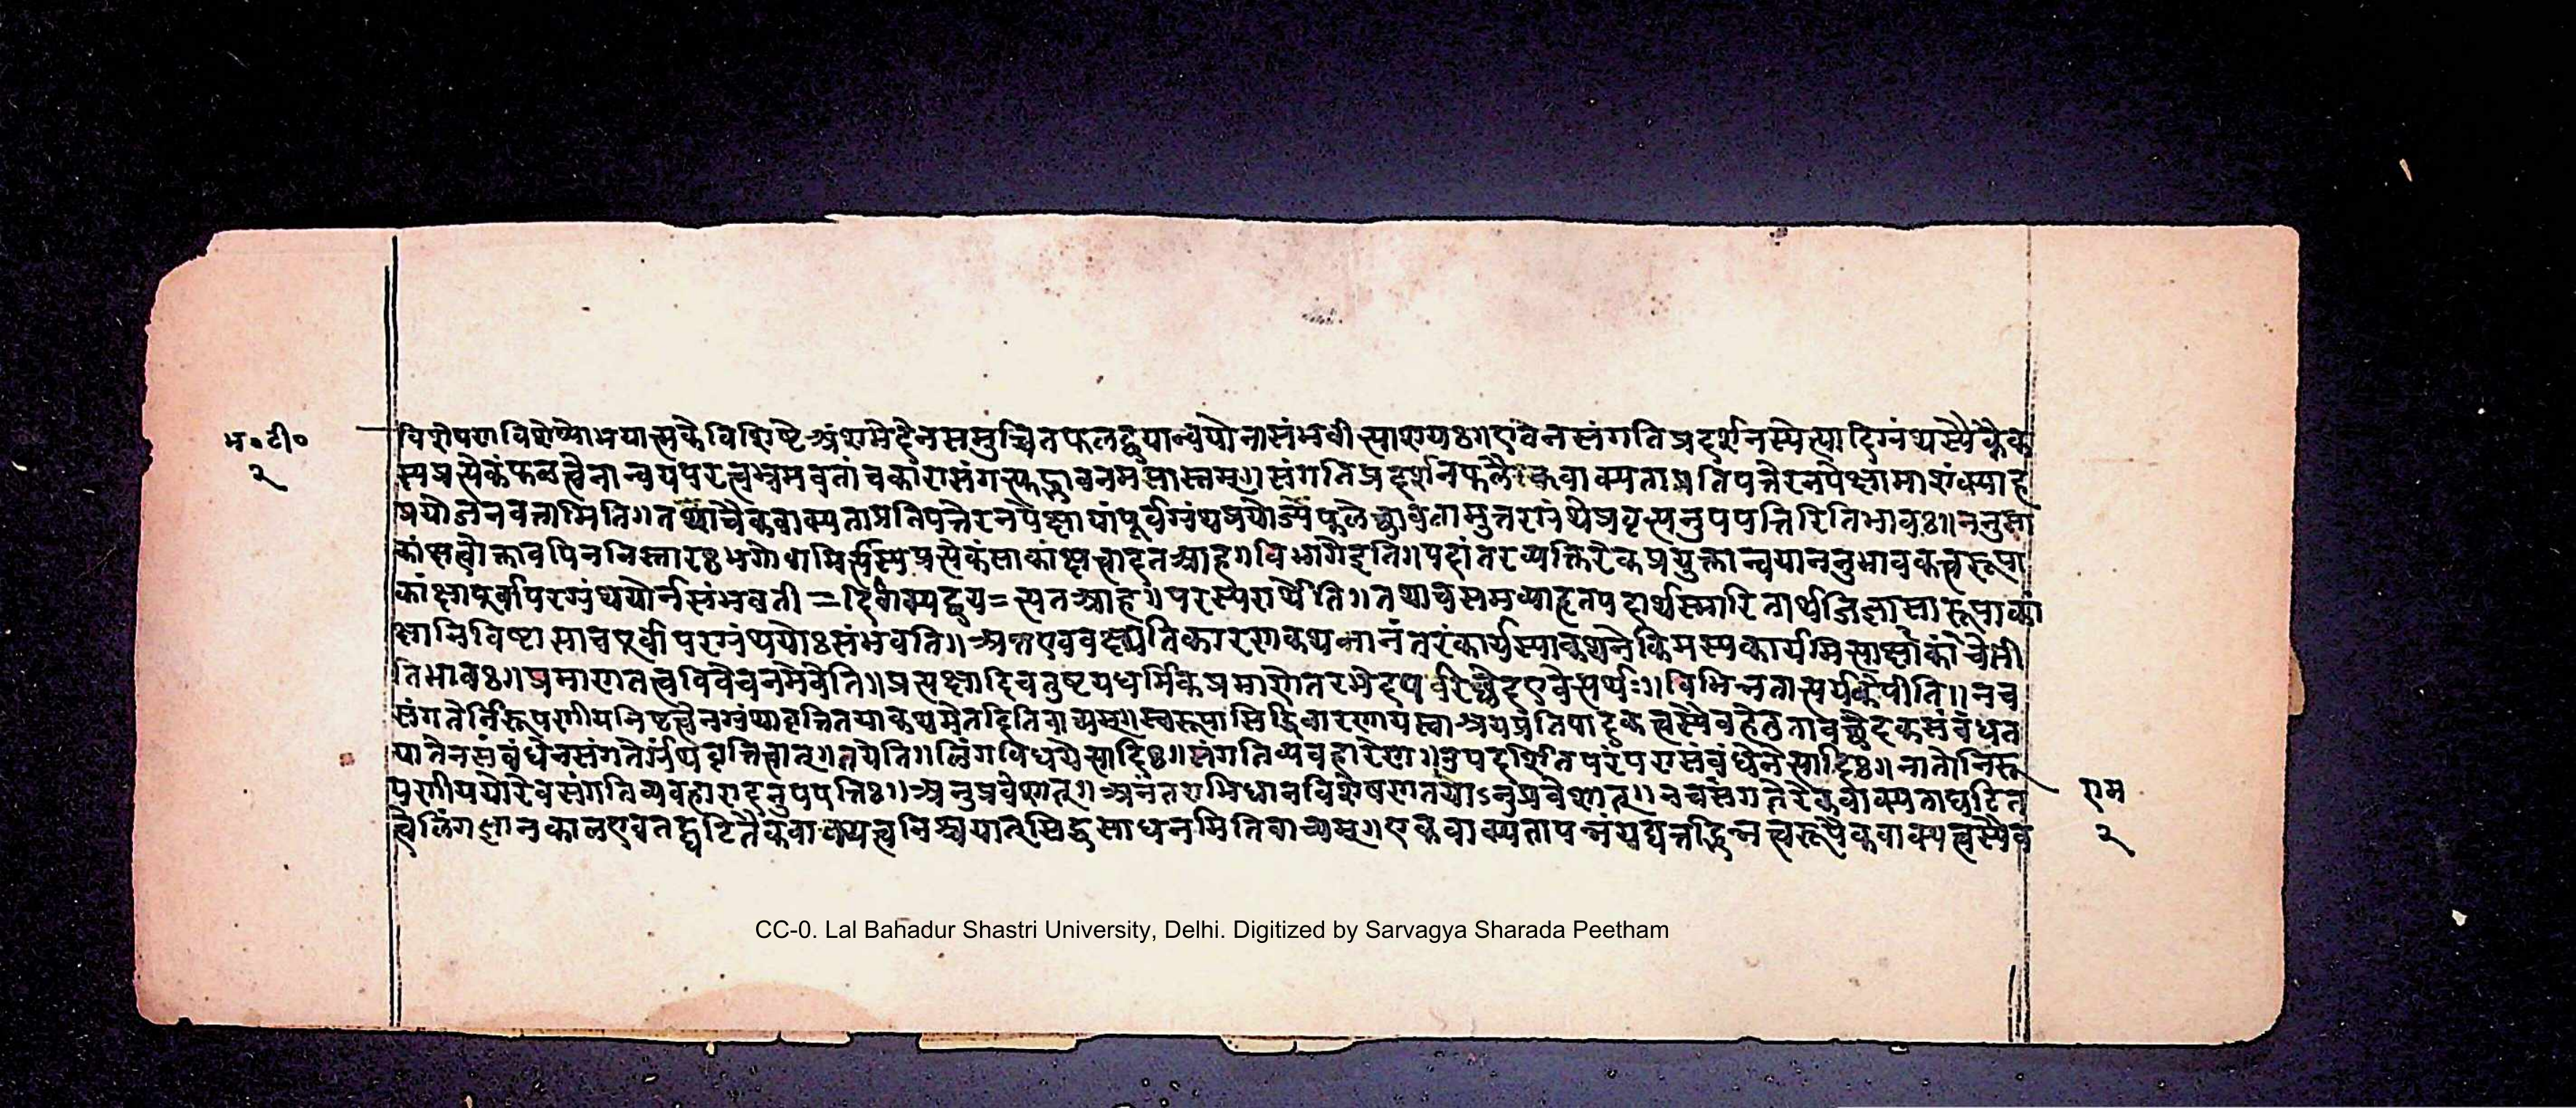 भ॰टी॰
२
विशेषणविशेष्योभयात्मके विशिष्टे अंशभेदेन समुच्चितफलद्वयान्वयो नासंभवीत्याशयः॥ एवं न संगतिप्रदर्शनस्येत्यादिग्रंथस्यैकैक
स्य प्रत्येकं फलत्वेनान्वयपरत्व
संगतिप्रदर्शनफलैकवाक्यताप्रतिपत्तेरनपेक्षामाशंक्याह
प्रयोजनवत्तामिति॥ तथा चैकवाक्यताप्रतिपत्तेरनपेक्षायां पूर्वग्रंथप्रयोज्यफलेच्छावतामुत्तरग्रंथे प्रवृत्त्यनुपपत्तिरिति भावः॥ ननु सा
कांक्षत्वोक्तावपि न निस्तारः
प्रत्येकं साकांक्षत्वादत आह॥ विभागे इति॥ पदांतरव्यतिरेकप्रयुक्तान्वयाननुभावकत्वरूपा
कांक्षा पूर्वापरग्रंथयोर्न संभवती
त्यत आह॥ परस्परार्थेति॥ तथा च समभ्याहृतपदार्थस्मारितार्थजिज्ञासारूपाकां
क्षा निविष्टा सा च पूर्वापरग्रंथयोः संभवति॥ अत एव वक्ष्यति कारणकथनानंतरं कार्यस्याकथने किमस्य कार्यमित्याकांक्षा
ति भावः॥ प्रमाणतत्त्वविवेचनमेवेति॥ प्रत्यक्षादिचतुष्टयधर्मिकप्रमाणेतरभेद
एवेत्यर्थः॥ विभिन्नतात्पर्यकेपीति॥ न च
संगतेर्निरूपणीयनिष्टत्वेन ग्रंथावृत्तितया कथमेतदिति वाच्यम्॥ स्वरूपासिद्धिवारणाय स्वाश्रयप्रतिपादकत्वस्यैव हेतुतावच्छेदकसंबंधत
या तेन संबंधेन संगतेर्ग्रंथवृत्तित्वात्॥ तयेति॥ लिंगविधयेत्यादिः॥ संगतिव्यवहारेण॥ उपदर्शितपरंपरासंबंधेनेत्यादिः॥ नातो निरू
पणीययोरेव संगतिव्यवहारादनुपपत्तिः॥ अनुप्रवेशात्॥ अनंतराभिधानविशेषणतयाऽनुप्रवेशात्॥ न च संगतेरेकवाक्यताघटित
त्वे लिंगज्ञानकाल एव तद्घटितैकवाक्यत्वनिश्चयात् सिद्धसाधनमिति वाच्यम्॥ एकवाक्यतापन्नं यद्यत्तद्भिन्नत्वरूपैकवाक्यत्वस्यैव
राम
२
CC-0. Lal Bahadur Shastri University, Delhi. Digitized by Sarvagya Sharada Peetham